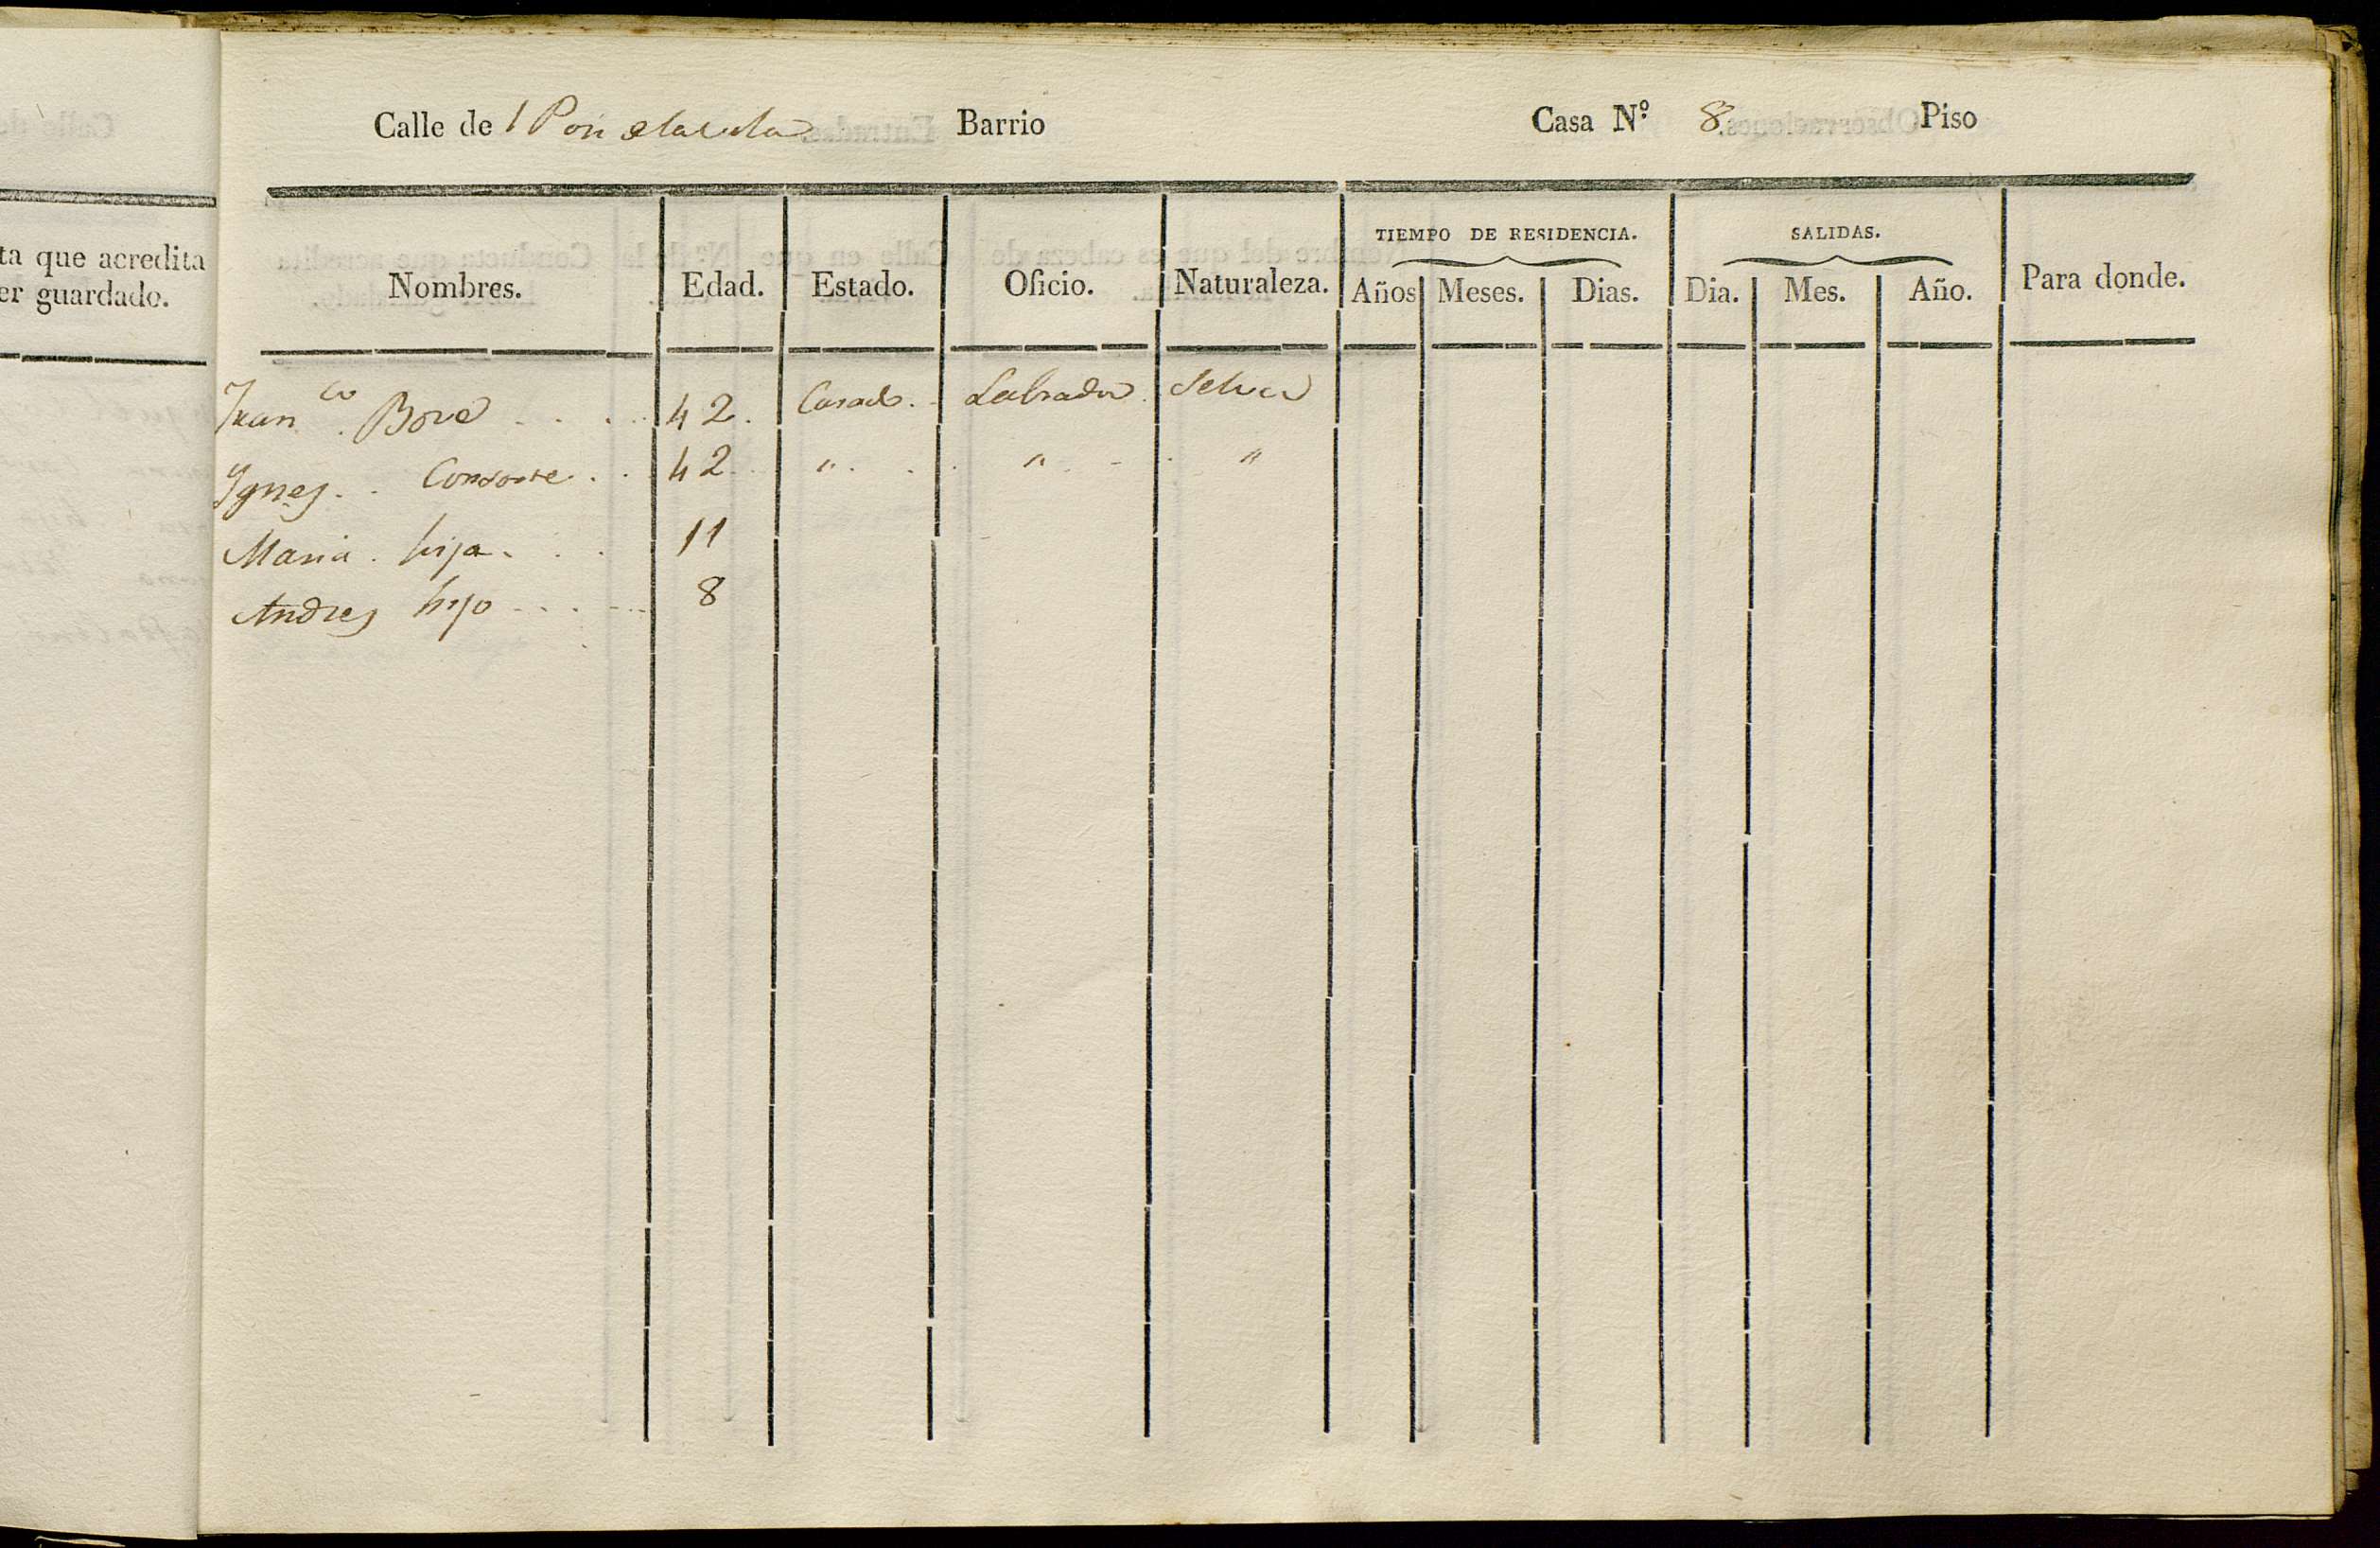 ta que acredita
er guardado.
Calle de l Pou Barrio Casa N.º 8. Piso
Nombres. Edad. Estado. Oficio. Naturaleza. TIEMPO DE RESIDENCIA. Años Meses. Dias. SALIDAS. Dia. Mes. Año. Para donde.
Franco. Bové 42. Casado. Labrador. Selva
Ygnes. Consorte 42 " " "
Maria. hija. 11
Andres hijo 8